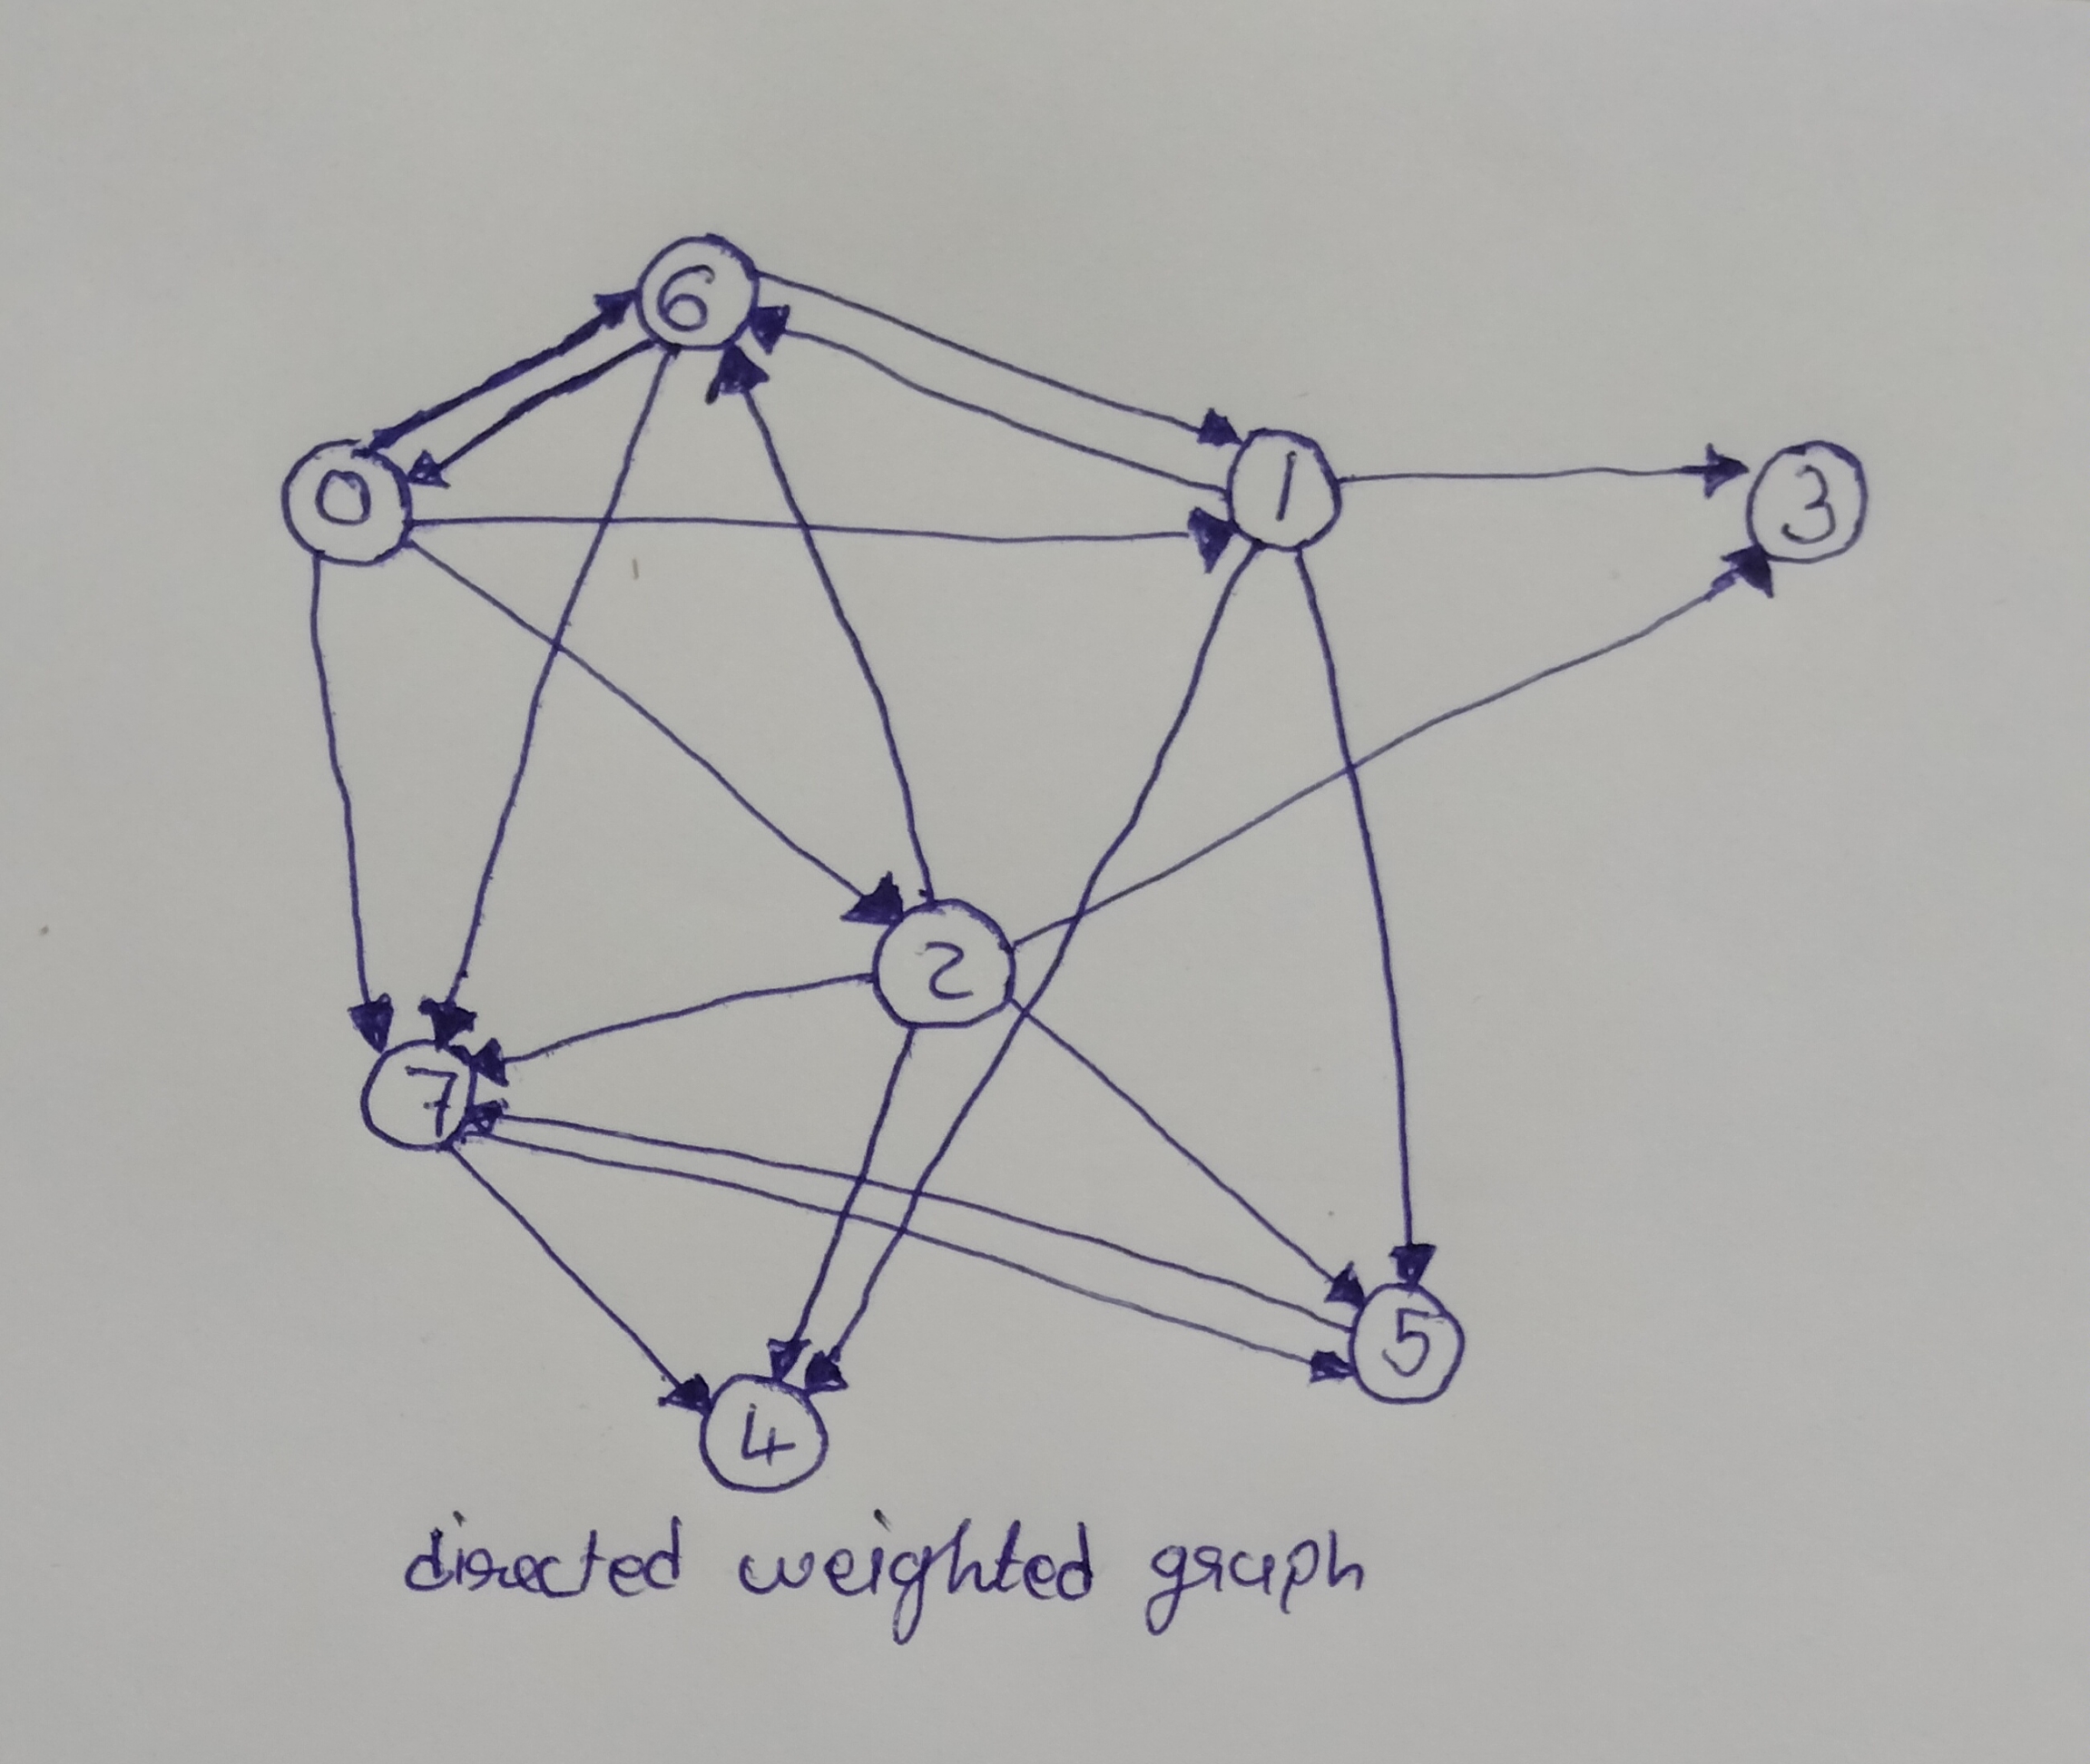 6
0
1
3
2
7
5
4
directed weighted graph